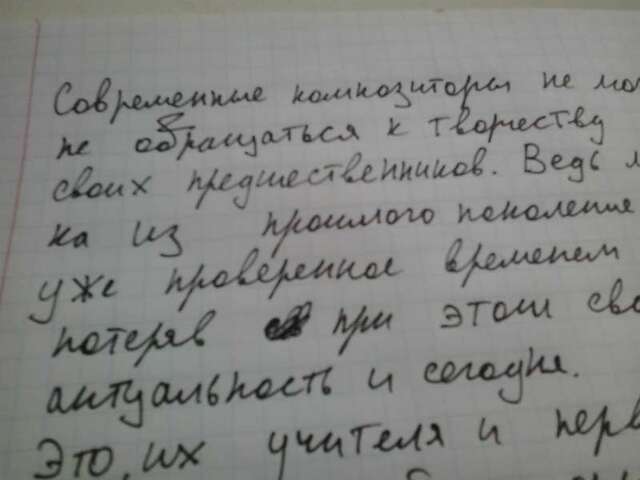 Современные композиторы не мо
не обращаться к творчеству
своих предшественников. Ведь
ка из прошлого поколение
уже проверенное временем
потеряв при этом сво
актуальность и сегодня.
Это, их учителя и перв